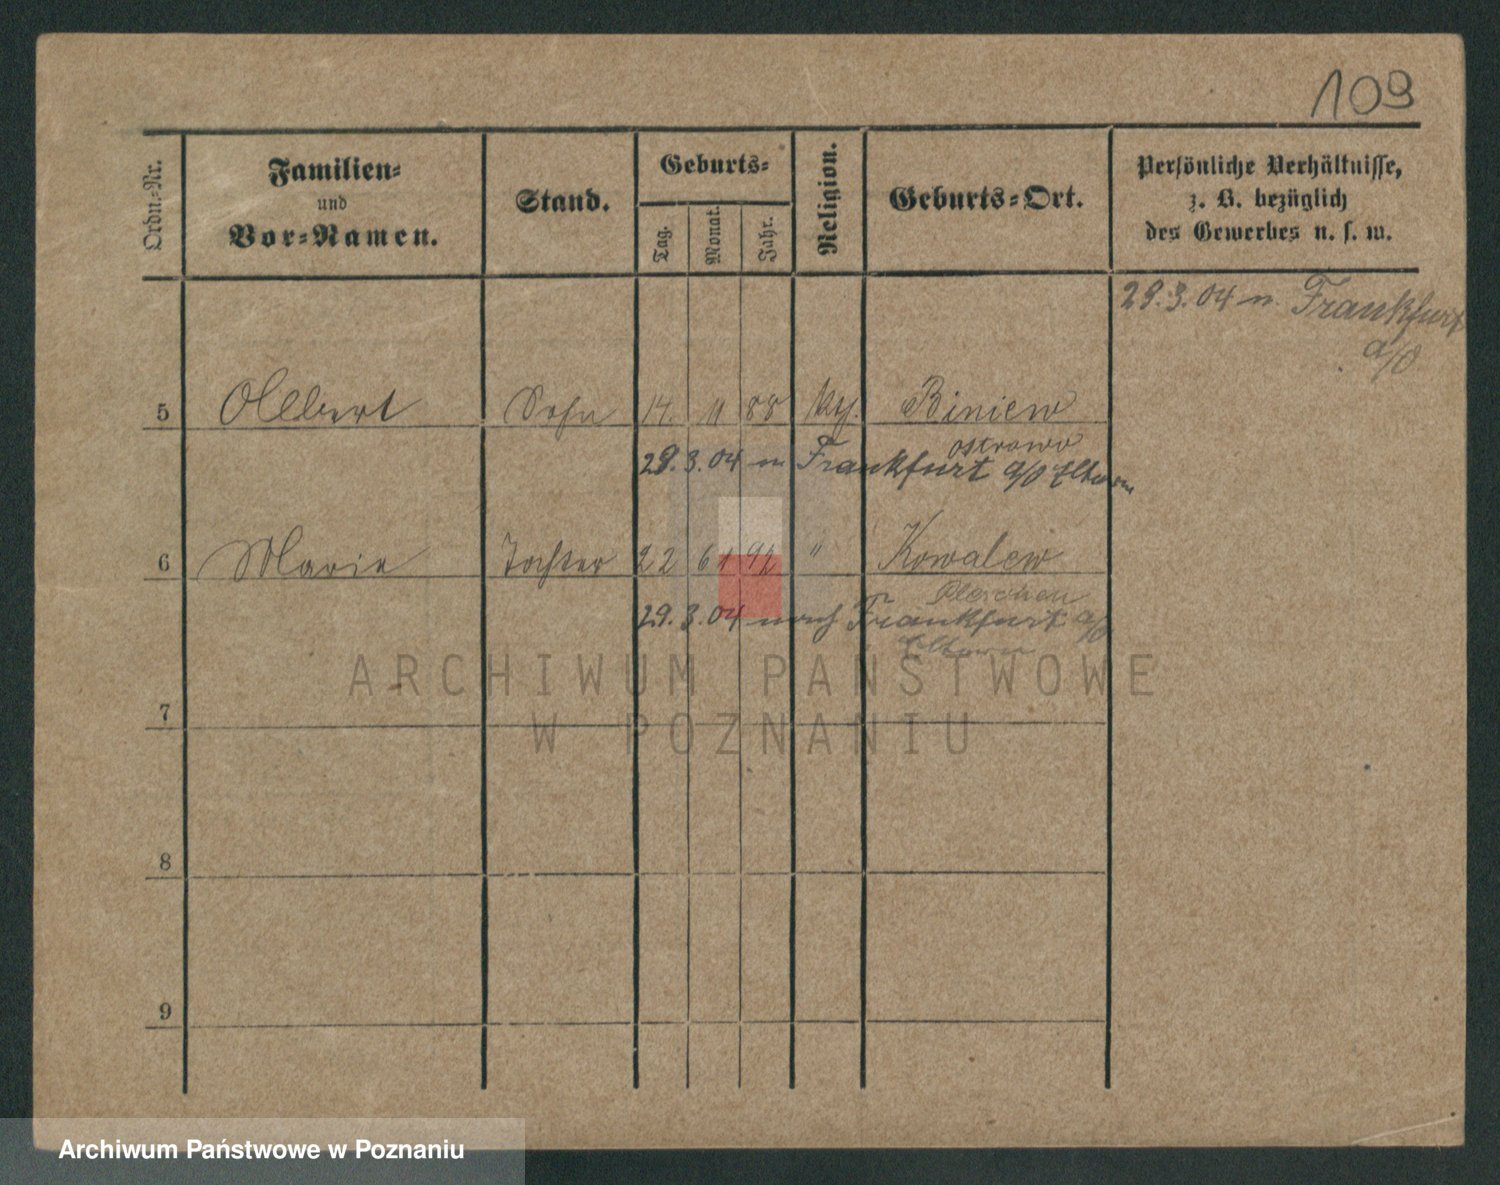 109
Ordn.-Nr.
Familien-
und
Vor-Namen.
Stand.
Geburts-
Tag.
Monat.
Jahr.
Religion.
Geburts-Ort.
Persönliche Verhältnisse,
z. B. bezüglich
des Gewerbes u. s. w.
29.3.04 n. Frankfurt
a/O
5 Albert Sohn 14. 11 88 Biniew
Ostrowo
29.3.04 n Frankfurt a/O Eltern
6 Marie Tochter 22 92 " Kowalew
Pleschen
29.3.04 nach Frankfurt a/O
Eltern
ARCHIWUM PAŃSTWOWE
W POZNANIU
7
8
9
Archiwum Państwowe w Poznaniu